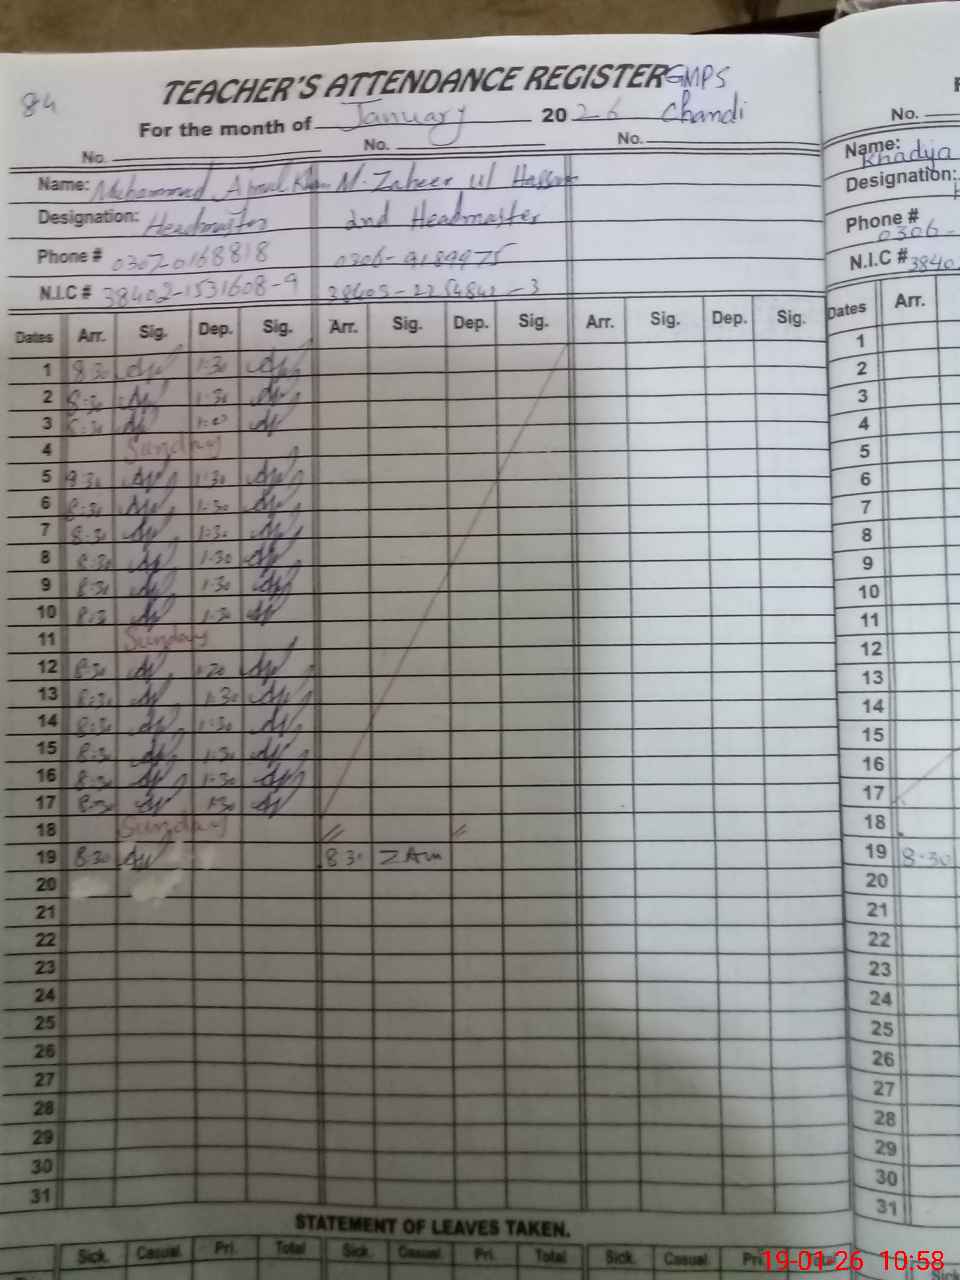 84
TEACHER'S ATTENDANCE REGISTER GMPS
For the month of January 2026 Chandi
No. No. No.
Name: Muhammad Khan M. Zaheer ul Hassan
Designation: Headmaster 2nd Headmaster
Phone # 0307-0168818 0306-9189975
N.I.C # 38402-1531608-9 38403-2254842-3
Dates Arr. Sig. Dep. Sig. Arr. Sig. Dep. Sig. Arr. Sig. Dep. Sig.
1 8:30 1:30
2 8:30 1:30
3 8:30
4 Sunday
5 8:30 1:30
6 8:30 1:30
7 8:30 1:30
8 8:30 1:30
9 8:30 1:30
10 8:30 1:30
11 Sunday
12 8:30 1:30
13 8:30 1:30
14 8:30 1:30
15 8:30 1:30
16 8:30 1:30
17 8:30 1:30
18 Sunday
19 8:30 8:30 ZAm
20
21
22
23
24
25
26
27
28
29
30
31
STATEMENT OF LEAVES TAKEN.
Sick. Casual Pri. Total Sick. Casual Pri. Total Sick. Casual Pri. Total
No.
Name: Khadija
Designation:
Phone # 0306-
N.I.C # 3840
Dates Arr.
1
2
3
4
5
6
7
8
9
10
11
12
13
14
15
16
17
18
19 8:30
20
21
22
23
24
25
26
27
28
29
30
31
19-01-26 10:58